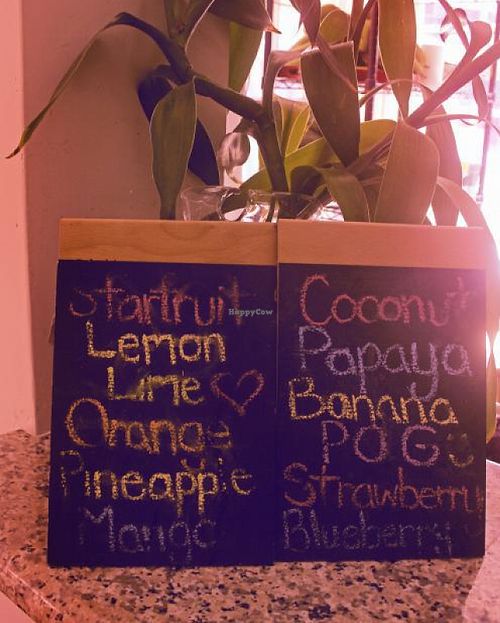 starfruit
Lemon
Lime
Orange
Pineapple
Mango
HappyCow
Coconut
Papaya
Banana
POG
Strawberry
Blueberry